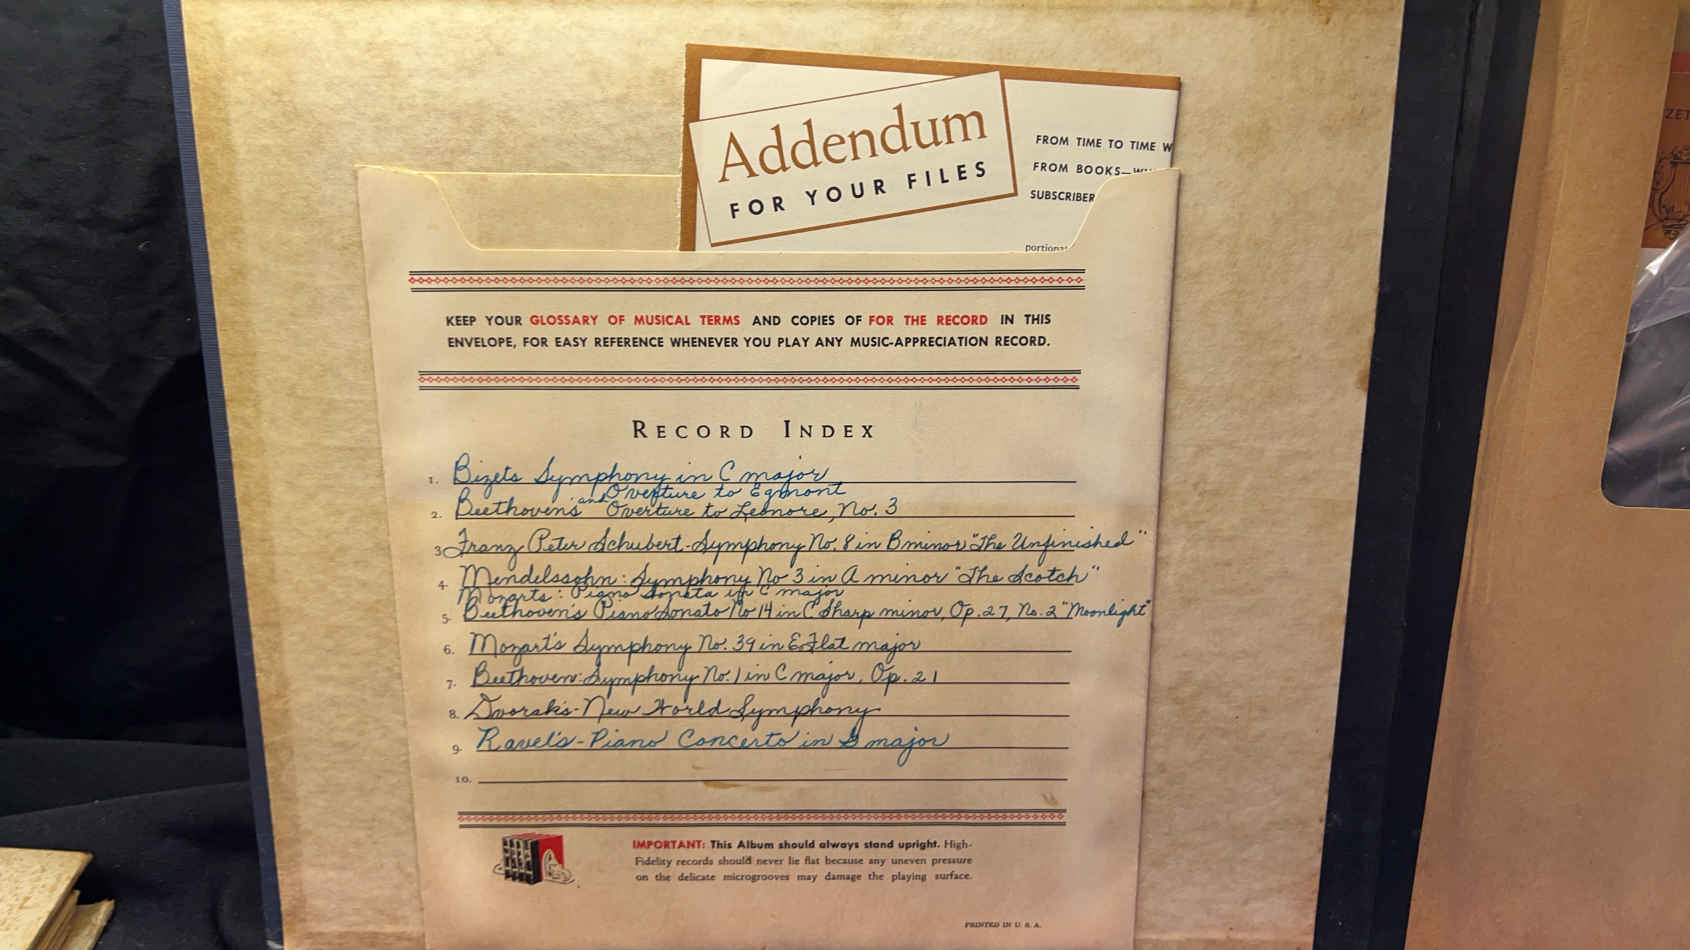 Addendum
FOR YOUR FILES
FROM TIME TO TIME W
FROM BOOKS—
SUBSCRIBER
portiona
ZET
KEEP YOUR GLOSSARY OF MUSICAL TERMS AND COPIES OF FOR THE RECORD IN THIS
ENVELOPE, FOR EASY REFERENCE WHENEVER YOU PLAY ANY MUSIC-APPRECIATION RECORD.
RECORD INDEX
1. Bizets Symphony in C major
and Overture to Egmont
2. Beethoven's Overture to Leonore, No. 3
3. Franz Peter Schubert-Symphony No. 8 in B minor "The Unfinished"
4. Mendelssohn: Symphony No 3 in A minor "The Scotch"
Mozarts: Piano Sonata in C major
5. Beethoven's Piano Sonato No 14 in C Sharp minor, Op. 27, No. 2 "Moonlight"
6. Mozart's Symphony No. 39 in E Flat major
7. Beethoven: Symphony No. 1 in C major, Op. 21
8. Dvorak's-New World Symphony
9. Ravel's-Piano Concerto in major
10.
IMPORTANT: This Album should always stand upright. High-
Fidelity records should never lie flat because any uneven pressure
on the delicate microgrooves may damage the playing surface.
PRINTED IN U. S. A.